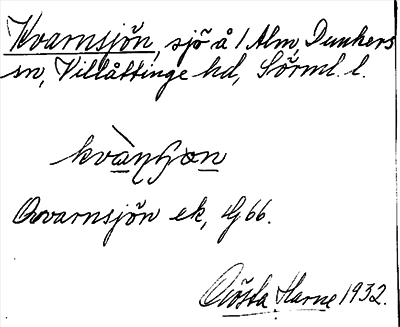 Kvarnsjön, sjö å 1 Alm, Dunkers
sn, Villåttinge hd, Sörml. l.
Qvarnsjön ek, G66.
Gösta Harne 1932.